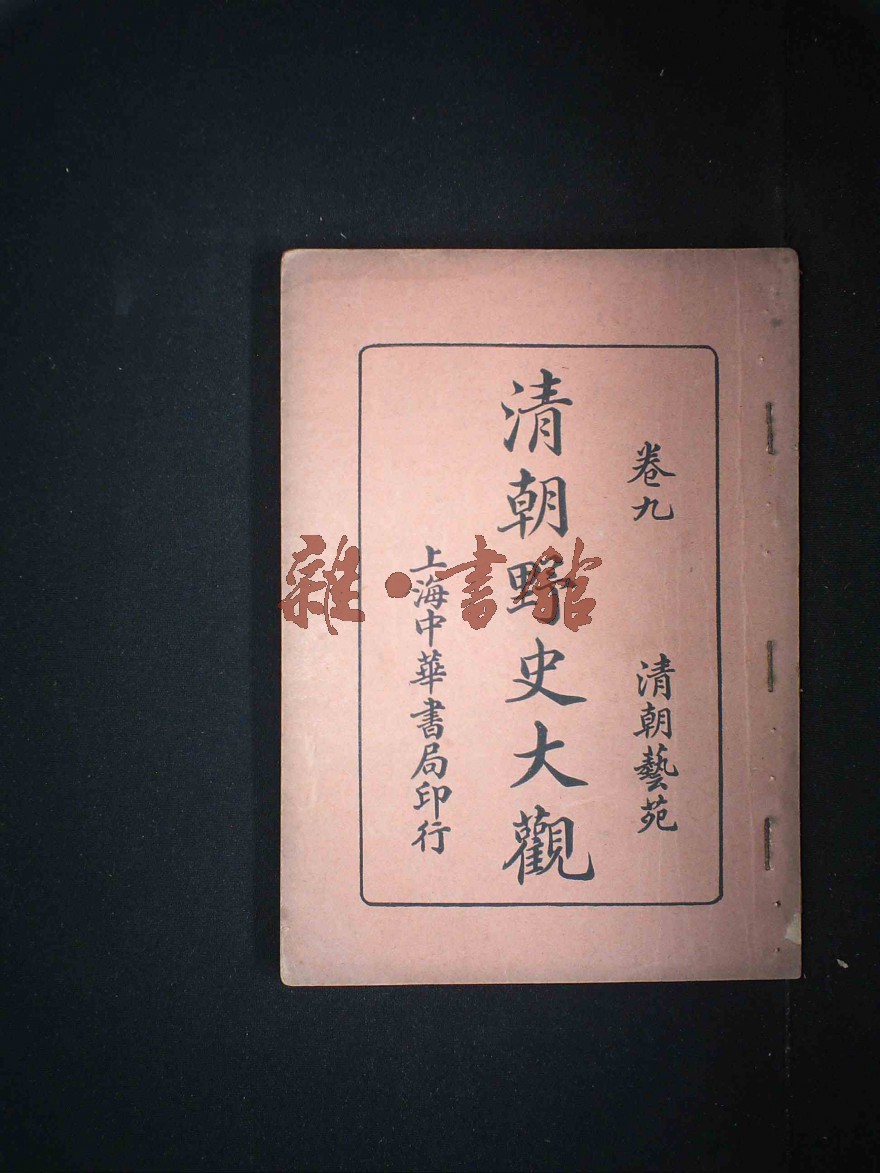 卷九
清朝藝苑
清朝野史大觀
上海中華書局印行
雜·書館